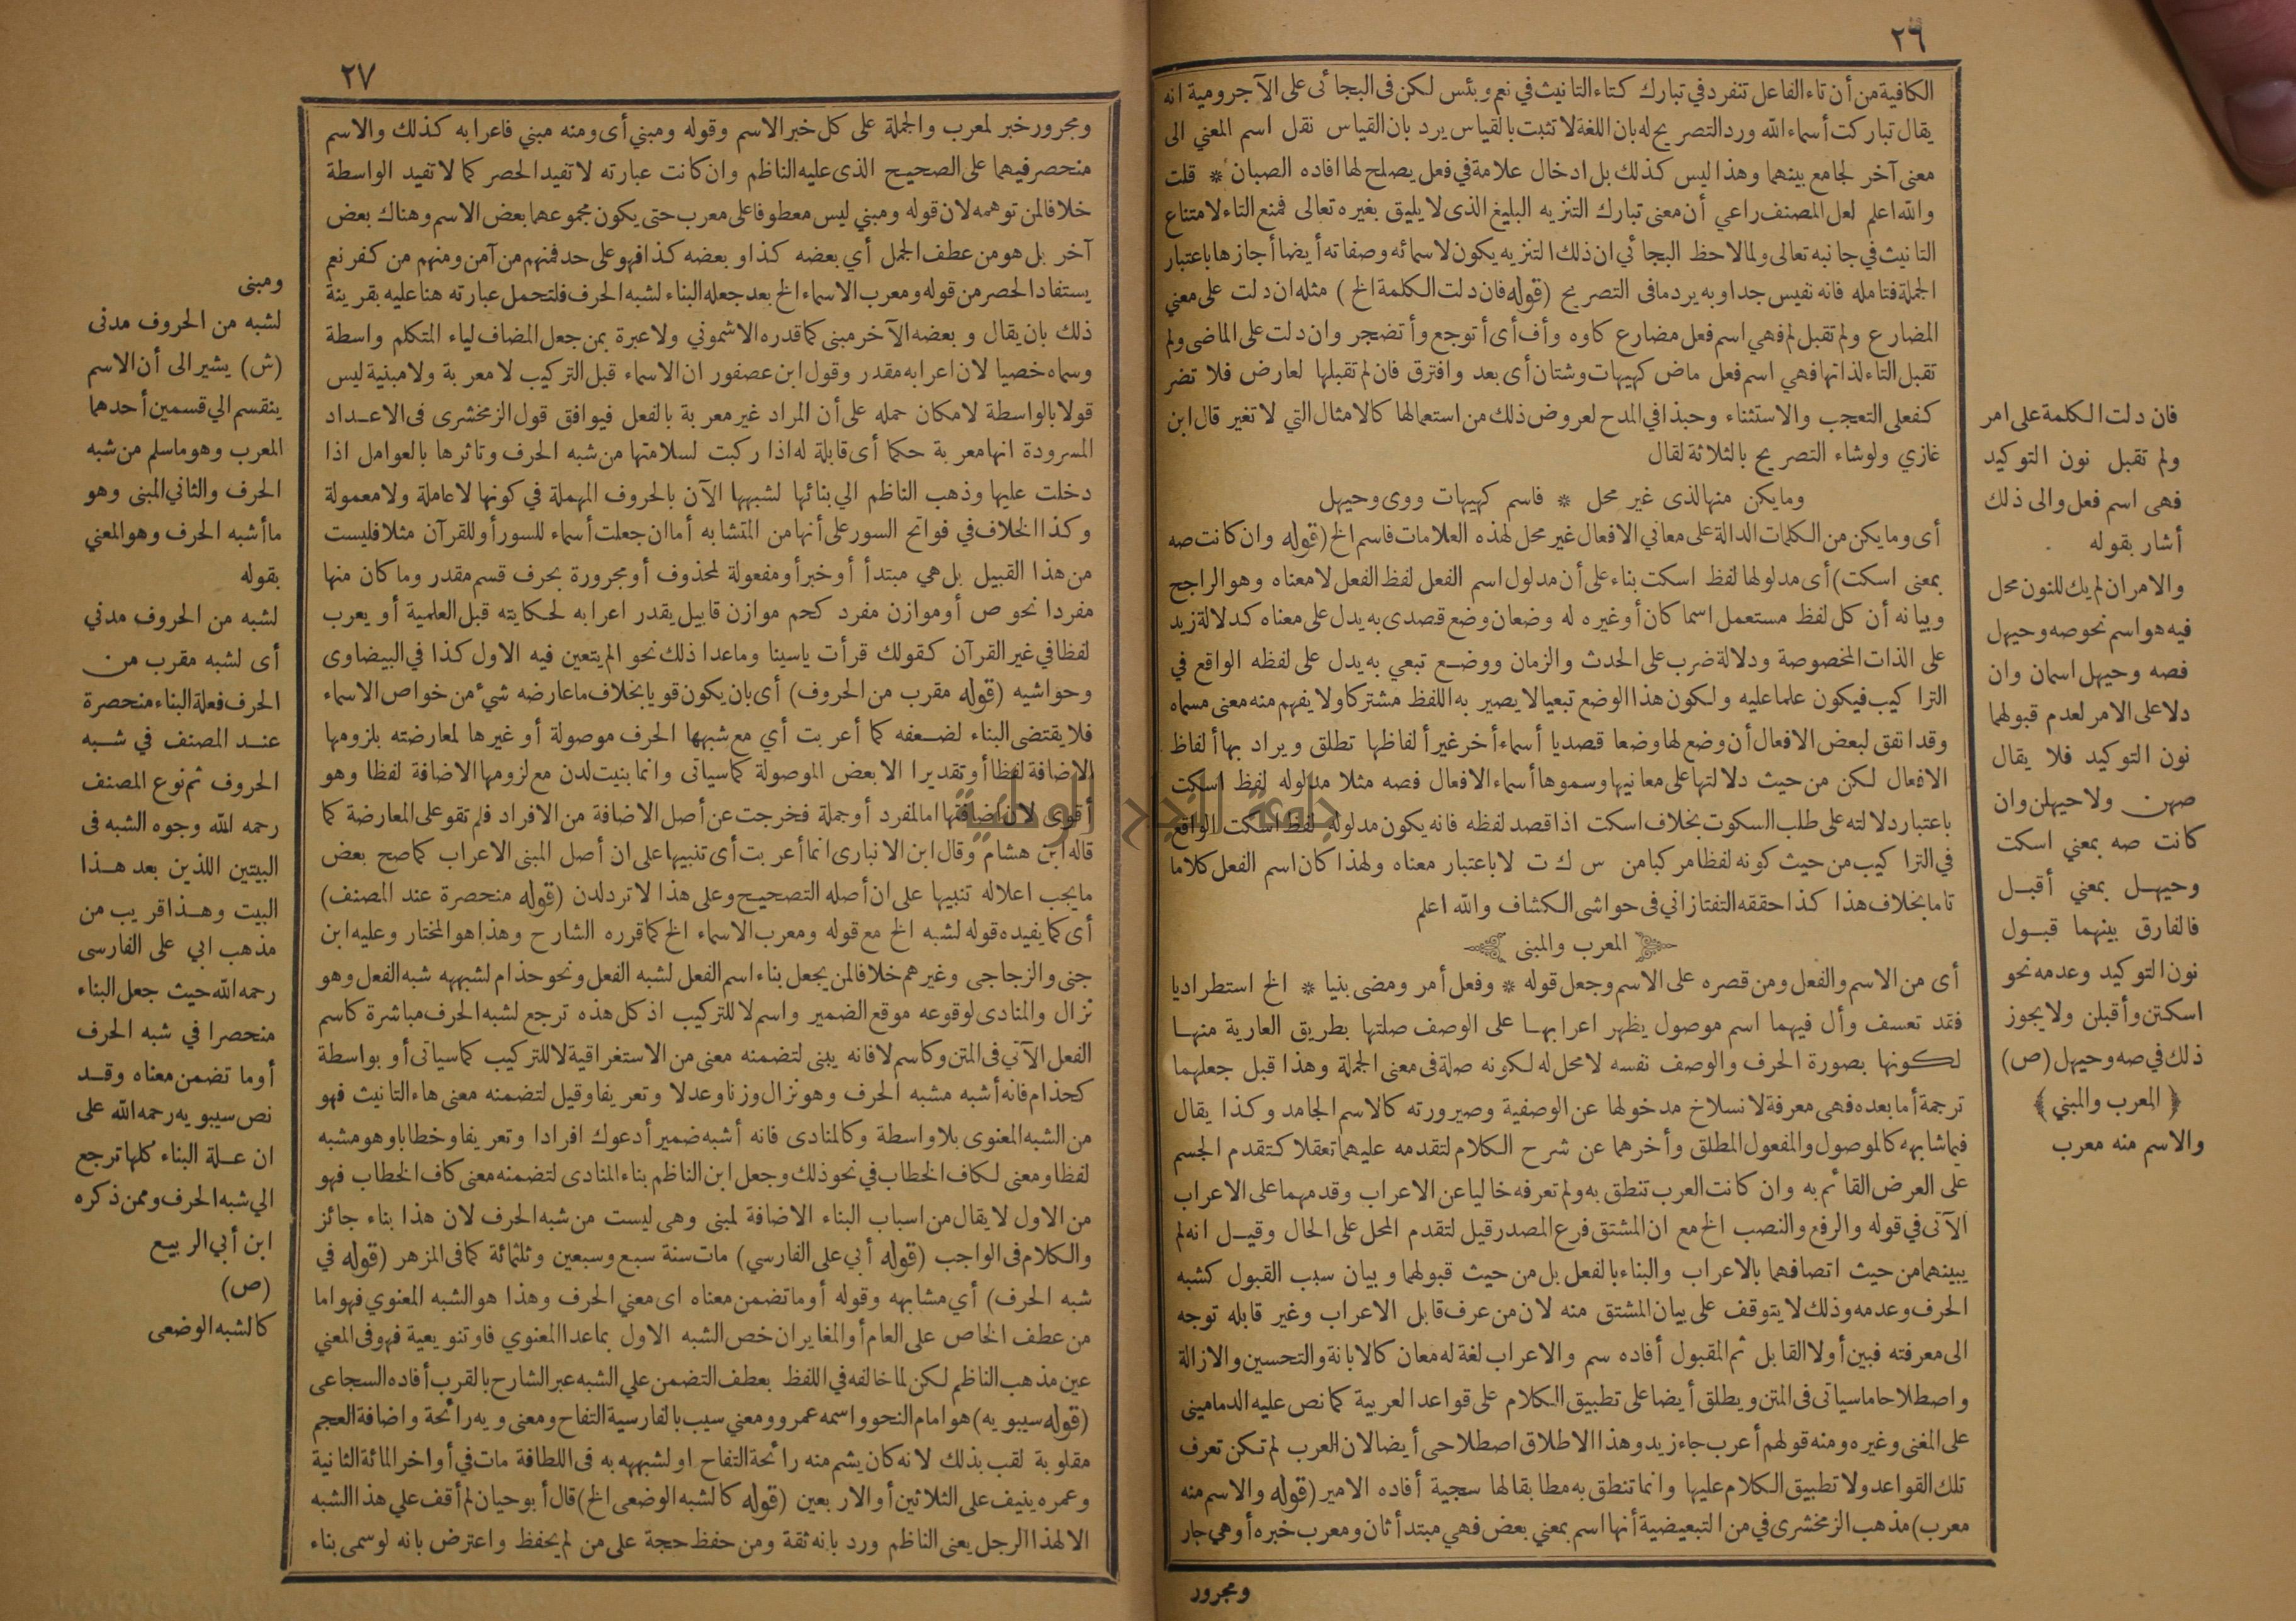 ٢٦
الكافية من أن تاء الفاعل تنفرد في تبارك كتاء التانيث في نعم وبئس لكن فى البجائى على الآجرومية انه
يقال تباركت أسماء الله ورد التصريح له بان اللغة لا تثبت بالقياس يرد بان القياس نقل اسم المعني الى
معنى آخر لجامع بينهما وهذا ليس كذلك بل ادخال علامة في فعل يصلح لها افاده الصبان * قلت
والله اعلم لعل المصنف راعي أن معنى تبارك التنزيه البليغ الذى لا يليق بغيره تعالى فمنع التاء لامتناع
التانيث في جانبه تعالى ولما لاحظ البجائي ان ذلك التنزيه يكون لاسمائه وصفاته أيضا أجازها باعتبار
الجملة فتامله فانه نفيس جدا وبه يرد مافى التصريح (قوله فان دلت الكلمة الخ) مثله ان دلت على معني
المضارع ولم تقبل لم فهي اسم فعل مضارع كاوه وأف أى أتوجع وأتضجر وان دلت على الماضى ولم
تقبل التاء لذاتها فهي اسم فعل ماض كهيهات وشتان أى بعد وافترق فان لم تقبلها لعارض فلا تضر
كفعلى التعجب والاستثناء وحبذا في المدح لعروض ذلك من استعمالها كالامثال التي لا تغير قال ابن
غازي ولو شاء التصريح بالثلاثة لقال
وما يكن منها لذى غير محل * فاسم كهيهات ووى وحيهل
أى وما يكن من الكلمات الدالة على معاني الافعال غير محل لهذه العلامات فاسم الخ (قوله وان كانت صه
بمعنى اسكت) أى مدلولها لفظ اسكت بناء على أن مدلول اسم الفعل لفظ الفعل لا معناه وهو الراجح
وبيانه أن كل لفظ مستعمل اسما كان أو غيره له وضعان وضع قصدى به يدل على معناه كدلالة زيد
على الذات المخصوصة ودلالة ضرب على الحدث والزمان ووضع تبعي به يدل على لفظه الواقع في
التراكيب فيكون علما عليه ولكون هذا الوضع تبعيا لا يصير به اللفظ مشتركا ولا يفهم منه معنى مسماه
وقد اتفق لبعض الافعال أن وضع لها وضعا قصديا أسماء أخر غير ألفاظها تطلق ويراد بها ألفاظ
الافعال لكن من حيث دلالتها على معانيها وسموها أسماء الافعال فصه مثلا مدلوله لفظ اسكت
باعتبار دلالته على طلب السكوت بخلاف اسكت اذا قصد لفظه فانه يكون مدلوله لفظ اسكت الواقع
في التراكيب من حيث كونه لفظا مركبا من س ك ت لا باعتبار معناه ولهذا كان اسم الفعل كلاما
تاما بخلاف هذا كذا حققه التفتازاني فى حواشى الكشاف والله اعلم
المعرب والمبنى
أى من الاسم والفعل ومن قصره على الاسم وجعل قوله * وفعل أمر ومضى بنيا * الخ استطراديا
فقد تعسف وأل فيهما اسم موصول يظهر اعرابها على الوصف صلتها بطريق العارية منها
لكونها بصورة الحرف والوصف نفسه لا محل له لكونه صلة فى معنى الجملة وهذا قبل جعلهما
ترجمة أما بعده فهى معرفة لانسلاخ مدخولها عن الوصفية وصيرورته كالاسم الجامد وكذا يقال
فيما شابهه كالموصول والمفعول المطلق وأخرهما عن شرح الكلام لتقدمه عليهما تعقلا كتقدم الجسم
على العرض القائم به وان كانت العرب تنطق به ولم تعرفه خاليا عن الاعراب وقدمهما على الاعراب
الآتى في قوله والرفع والنصب الخ مع ان المشتق فرع المصدر قيل لتقدم المحل على الحال وقيل انه لم
يبينهما من حيث اتصافهما بالاعراب والبناء بالفعل بل من حيث قبولهما وبيان سبب القبول كشبه
الحرف وعدمه وذلك لا يتوقف على بيان المشتق منه لان من عرف قابل الاعراب وغير قابله توجه
الى معرفته فبين أولا القابل ثم المقبول أفاده سم والاعراب لغة له معان كالابانة والتحسين والازالة
واصطلاحا ماسياتى فى المتن ويطلق أيضا على تطبيق الكلام على قواعد العربية كما نص عليه الدمامينى
على المغنى وغيره ومنه قولهم أعرب جاء زيد وهذا الاطلاق اصطلاحى أيضا لان العرب لم تكن تعرف
تلك القواعد ولا تطبيق الكلام عليها وانما تنطق به مطابقا لها سجية أفاده الامير (قوله والاسم منه
معرب) مذهب الزمخشرى في من التبعيضية أنها اسم بمعني بعض فهي مبتدأ ثان ومعرب خبره أو هي جار
ومجرور
فان دلت الكلمة على امر
ولم تقبل نون التوكيد
فهى اسم فعل والى ذلك
أشار بقوله
والامر ان لم يك للنون محل
فيه هو اسم نحو صه وحيهل
فصه وحيهل اسمان وان
دلا على الامر لعدم قبولهما
نون التوكيد فلا يقال
صهن ولا حيهلن وان
كانت صه بمعني اسكت
وحيهل بمعني أقبل
فالفارق بينهما قبول
نون التوكيد وعدمه نحو
اسكتن وأقبلن ولا يجوز
ذلك في صه وحيهل (ص)
﴿المعرب والمبني﴾
والاسم منه معرب
٢٧
ومجرور خبر لمعرب والجملة على كل خبر الاسم وقوله ومبني أى ومنه مبني فاعرابه كذلك والاسم
منحصر فيهما على الصحيح الذى عليه الناظم وان كانت عبارته لا تفيد الحصر كما لا تفيد الواسطة
خلافا لمن توهمه لان قوله ومبني ليس معطوفا على معرب حتى يكون مجموعهما بعض الاسم وهناك بعض
آخر بل هو من عطف الجمل أي بعضه كذا وبعضه كذا فهو على حد فمنهم من آمن ومنهم من كفر نعم
يستفاد الحصر من قوله ومعرب الاسماء الخ بعد جعله البناء لشبه الحرف فلتحمل عبارته هنا عليه بقرينة
ذلك بان يقال وبعضه الآخر مبنى كما قدره الاشموني ولا عبرة بمن جعل المضاف لياء المتكلم واسطة
وسماه خصيا لان اعرابه مقدر وقول ابن عصفور ان الاسماء قبل التركيب لا معربة ولا مبنية ليس
قولا بالواسطة لامكان حمله على أن المراد غير معربة بالفعل فيوافق قول الزمخشرى فى الاعداد
المسرودة انها معربة حكما أى قابلة له اذا ركبت لسلامتها من شبه الحرف وتاثرها بالعوامل اذا
دخلت عليها وذهب الناظم الي بنائها لشبهها الآن بالحروف المهملة في كونها لا عاملة ولا معمولة
وكذا الخلاف في فواتح السور على أنها من المتشابه أما ان جعلت أسماء للسور أو للقرآن مثلا فليست
من هذا القبيل بل هي مبتدأ أو خبر أو مفعولة لمحذوف أو مجرورة بحرف قسم مقدر وما كان منها
مفردا نحو ص أو موازن مفرد كحم موازن قابيل يقدر اعرابه لحكايته قبل العلمية أو يعرب
لفظا في غير القرآن كقولك قرأت ياسينا وما عدا ذلك نحو الم يتعين فيه الاول كذا في البيضاوى
وحواشيه (قوله مقرب من الحروف) أى بان يكون قويا بخلاف ما عارضه شيء من خواص الاسماء
فلا يقتضى البناء لضعفه كما أعربت أي مع شبهها الحرف موصولة أو غيرها لمعارضته بلزومها
الاضافة لفظا أو تقديرا الا بعض الموصولة كماسياتى وانما بنيت لدن مع لزومها الاضافة لفظا وهو
أقوى لان اضافتها اما لمفرد أو جملة فخرجت عن أصل الاضافة من الافراد فلم تقو على المعارضة كما
قاله ابن هشام وقال ابن الانبارى انما أعربت أى تنبيها على ان أصل المبنى الاعراب كما صح بعض
ما يجب اعلاله تنبيها على ان أصله التصحيح وعلى هذا لا ترد لدن (قوله منحصرة عند المصنف)
أى كما يفيده قوله لشبه الخ مع قوله ومعرب الاسماء الخ كما قرره الشارح وهذا هو المختار وعليه ابن
جنى والزجاجى وغيرهم خلافا لمن يجعل بناء اسم الفعل لشبه الفعل ونحو حذام لشبهه شبه الفعل وهو
نزال والمنادى لوقوعه موقع الضمير واسم لا للتركيب اذ كل هذه ترجع لشبه الحرف مباشرة كاسم
الفعل الآتي فى المتن وكاسم لا فانه يبنى لتضمنه معنى من الاستغراقية لا للتركيب كماسياتى أو بواسطة
كحذام فانه أشبه مشبه الحرف وهو نزال وزنا وعدلا وتعريفا وقيل لتضمنه معنى هاء التانيث فهو
من الشبه المعنوى بلا واسطة وكالمنادى فانه أشبه ضمير أدعوك افرادا وتعريفا وخطابا وهو مشبه
لفظا ومعنى لكاف الخطاب في نحو ذلك وجعل ابن الناظم بناء المنادى لتضمنه معنى كاف الخطاب فهو
من الاول لا يقال من اسباب البناء الاضافة لمبنى وهى ليست من شبه الحرف لان هذا بناء جائز
والكلام فى الواجب (قوله أبي على الفارسي) مات سنة سبع وسبعين وثلثمائة كما فى المزهر (قوله في
شبه الحرف) أي مشابهه وقوله أو ما تضمن معناه اى معني الحرف وهذا هو الشبه المعنوي فهو اما
من عطف الخاص على العام أو المغاير ان خص الشبه الاول بما عدا المعنوي فاو تنويعية فهو فى المعني
عين مذهب الناظم لكن لما خالفه في اللفظ بعطف التضمن علي الشبه عبر الشارح بالقرب أفاده السجاعى
(قوله سيبويه) هو امام النحو واسمه عمرو ومعني سيب بالفارسية التفاح ومعنى ويه رائحة واضافة العجم
مقلوبة لقب بذلك لانه كان يشم منه رائحة التفاح او لشبهه به فى اللطافة مات في أواخر المائة الثانية
وعمره ينيف على الثلاثين أو الاربعين (قوله كالشبه الوضعى الخ) قال أبو حيان لم أقف علي هذا الشبه
الا لهذا الرجل يعنى الناظم ورد بانه ثقة ومن حفظ حجة على من لم يحفظ واعترض بانه لو سمى بناء
ومبنى
لشبه من الحروف مدنى
(ش) يشير الى أن الاسم
ينقسم الي قسمين أحدهما
المعرب وهو ما سلم من شبه
الحرف والثاني المبنى وهو
ما أشبه الحرف وهو المعني
بقوله
لشبه من الحروف مدني
أى لشبه مقرب من
الحرف فعلة البناء منحصرة
عند المصنف في شبه
الحروف ثم نوع المصنف
رحمه الله وجوه الشبه فى
البيتين اللذين بعد هذا
البيت وهذا قريب من
مذهب ابي على الفارسى
رحمه الله حيث جعل البناء
منحصرا في شبه الحرف
أو ما تضمن معناه وقد
نص سيبويه رحمه الله على
ان علة البناء كلها ترجع
الي شبه الحرف وممن ذكره
ابن أبي الربيع
(ص)
كالشبه الوضعى
جامعة النجاح الوطنية